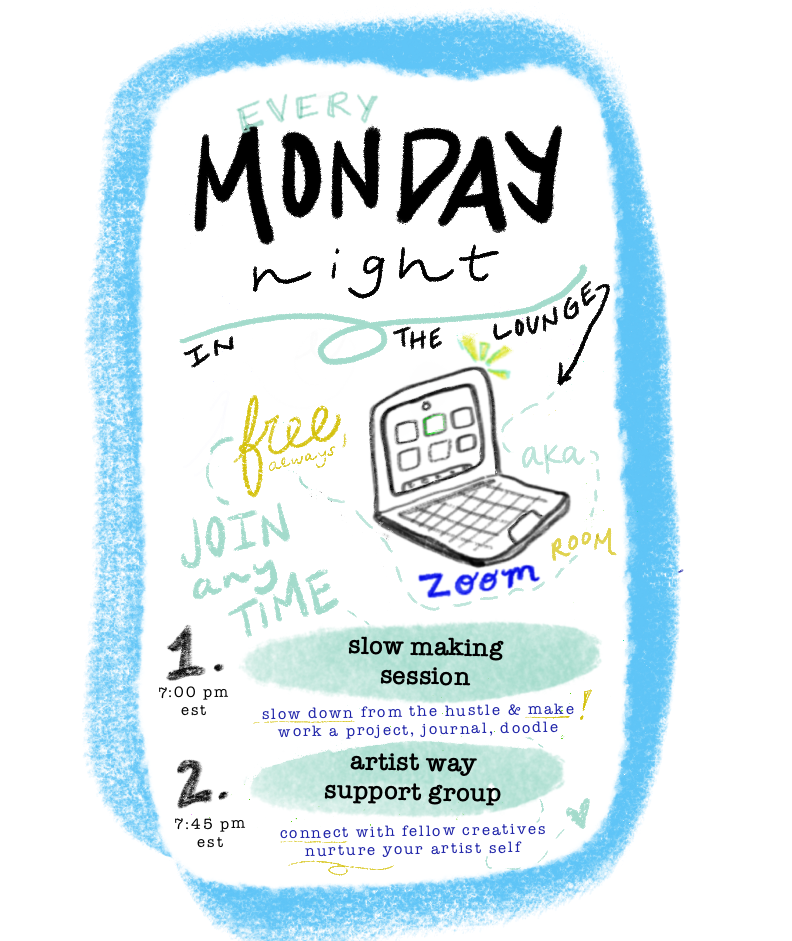 EVERY
MONDAY
night
IN THE LOUNGE
free
always!
aka
JOIN
any
TIME
ROOM
zoom
1.
slow making
session
7:00 pm
est
slow down from the hustle & make!
work a project, journal, doodle
2.
artist way
support group
7:45 pm
est
connect with fellow creatives
nurture your artist self